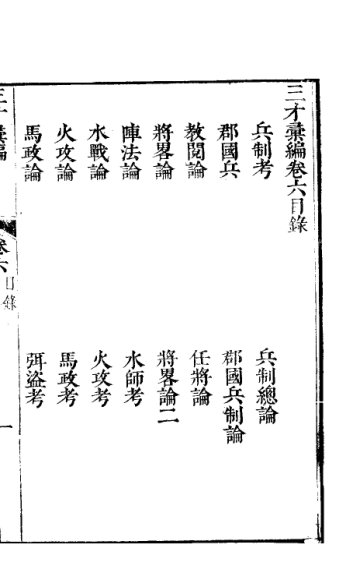 三才彙編卷六目錄
兵制考 兵制總論
郡國兵 郡國兵制論
教閱論 任將論
將畧論 將畧論二
陣法論 水師考
水戰論 火攻考
火攻論 馬政考
馬政論 弭盜考
三才彙編 卷六 目錄 一